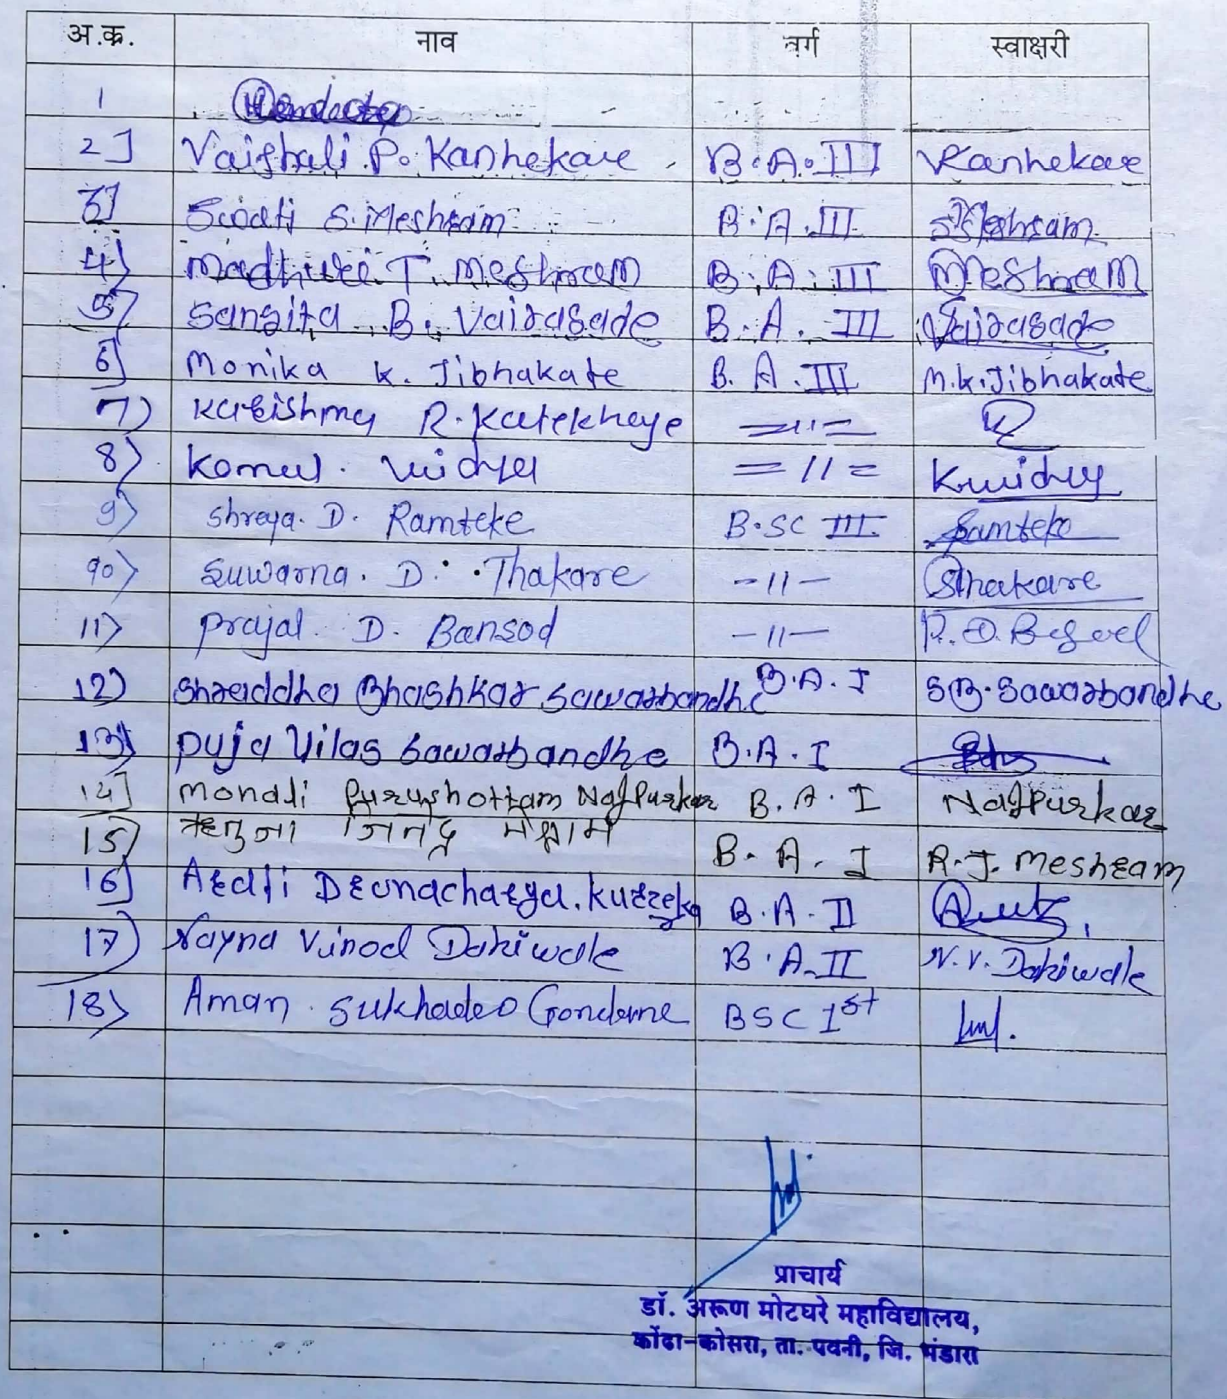 अ.क्र. नाव वर्ग स्वाक्षरी
1
2] Vaishali P. Kanhekare B.A.III Kanhekare
3] Swati S. Meshram B.A.III S. Meshram
4) Madhuri T. Meshram B.A.III Meshram
5] Sangita B. Vairagade B.A. III Vairagade
6] Monika K. Jibhakate B.A.III M.K.Jibhakate
7) Karishma R. Katekhaye =11=
8) Komal. Vaidya =11= Kvaidya
9) Shreya. D. Ramteke B.SC III. Ramteke
१०) Suwarna. D. Thakare -11- Sthakare
11) Prajal D. Bansod -11-
12) Shraddha Bhashkar Sawarbandhe B.A.I S.B.Sawarbandhe
13) Puja Vilas Sawarbandhe B.A.I
14] Monali Purushottam Nagpurkar B.A.I Nagpurkar
15) मेश्राम B.A.I R.J. Meshram
16] Arati Dronacharya. B.A.II
17) Nayna Vinod Dakiwale B.A.II N.V.Dakiwale
18) Aman Sukhadeo Gondane BSC 1st
प्राचार्य
डॉ. अरूण मोटघरे महाविद्यालय,
कोंढा-कोसरा, ता. पवनी, जि. भंडारा